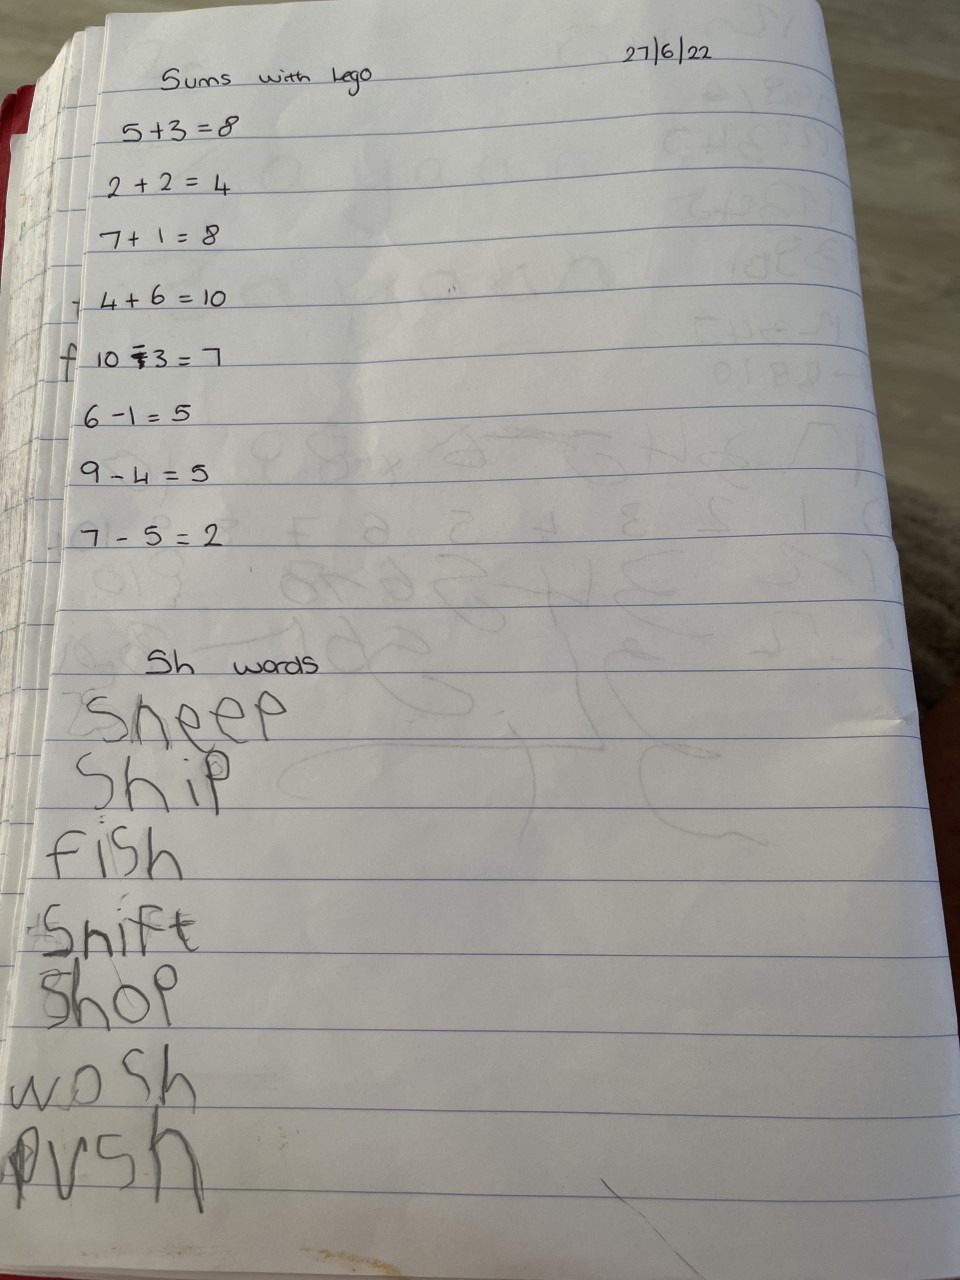 27/6/22
Sums with lego
5 + 3 = 8
2 + 2 = 4
7 + 1 = 8
4 + 6 = 10
10 - 3 = 7
6 - 1 = 5
9 - 4 = 5
7 - 5 = 2
Sh words
Sheep
Ship
fish
Shift
Shop
wosh
push